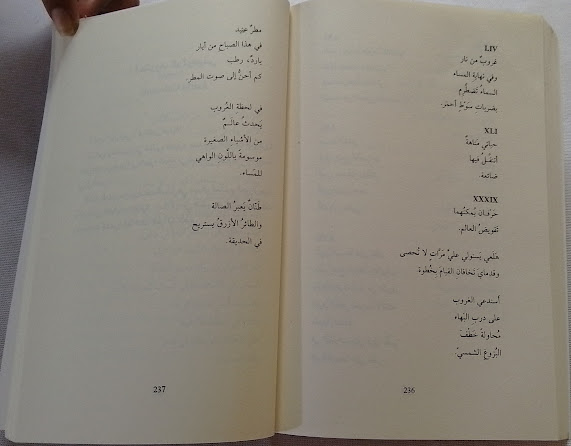 LIV
غروبٌ من نار
وفي نهاية المساء
السماءُ تَضطَرِم
بضربات سَوْطٍ أحمَر.
XLI
حياتي مَتاهةٌ
أتنقّلُ فيها
ضائعة.
XXXIX
حَرفان يُمكنُهما
تَقويضُ العالم.
هَلَعي يَستولي عليَّ مَرّاتٍ لا تُحصى
وقدمايَ تَخافانِ القيامَ بخُطوة
أستدعي الغروب
على دربِ البَهاء
مُحاولةً خَطْفَ
البُزوغِ الشمسيّ.
236
مطرٌ عنيد
في هذا الصباح من أيار
باردٌ، رطب
كم أحنُّ إلى صوت المطر.
في لحظة الغُروب
يَحدثُ عالَـمٌ
من الأشياء الصغيرة
موسومةً باللّون الواهي
للمَساء.
طَنّانٌ يَعبرُ الصالة
والطائرُ الأزرقُ يستريح
في الحديقة.
237